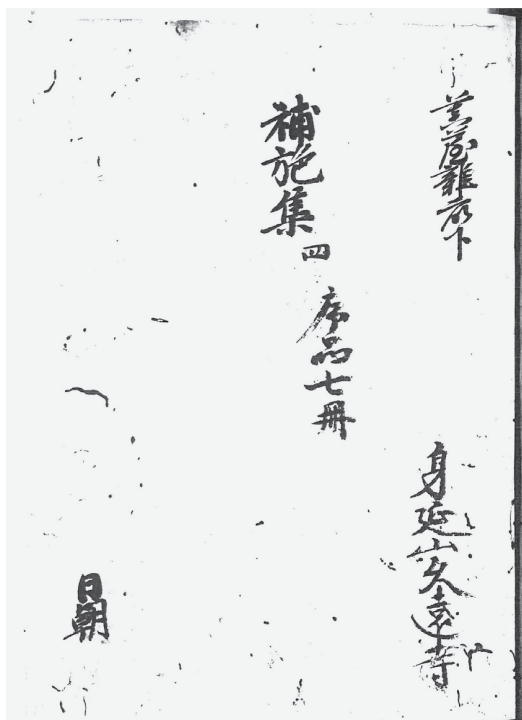 身延山久遠寺
補施集 四
序品七冊
日朝